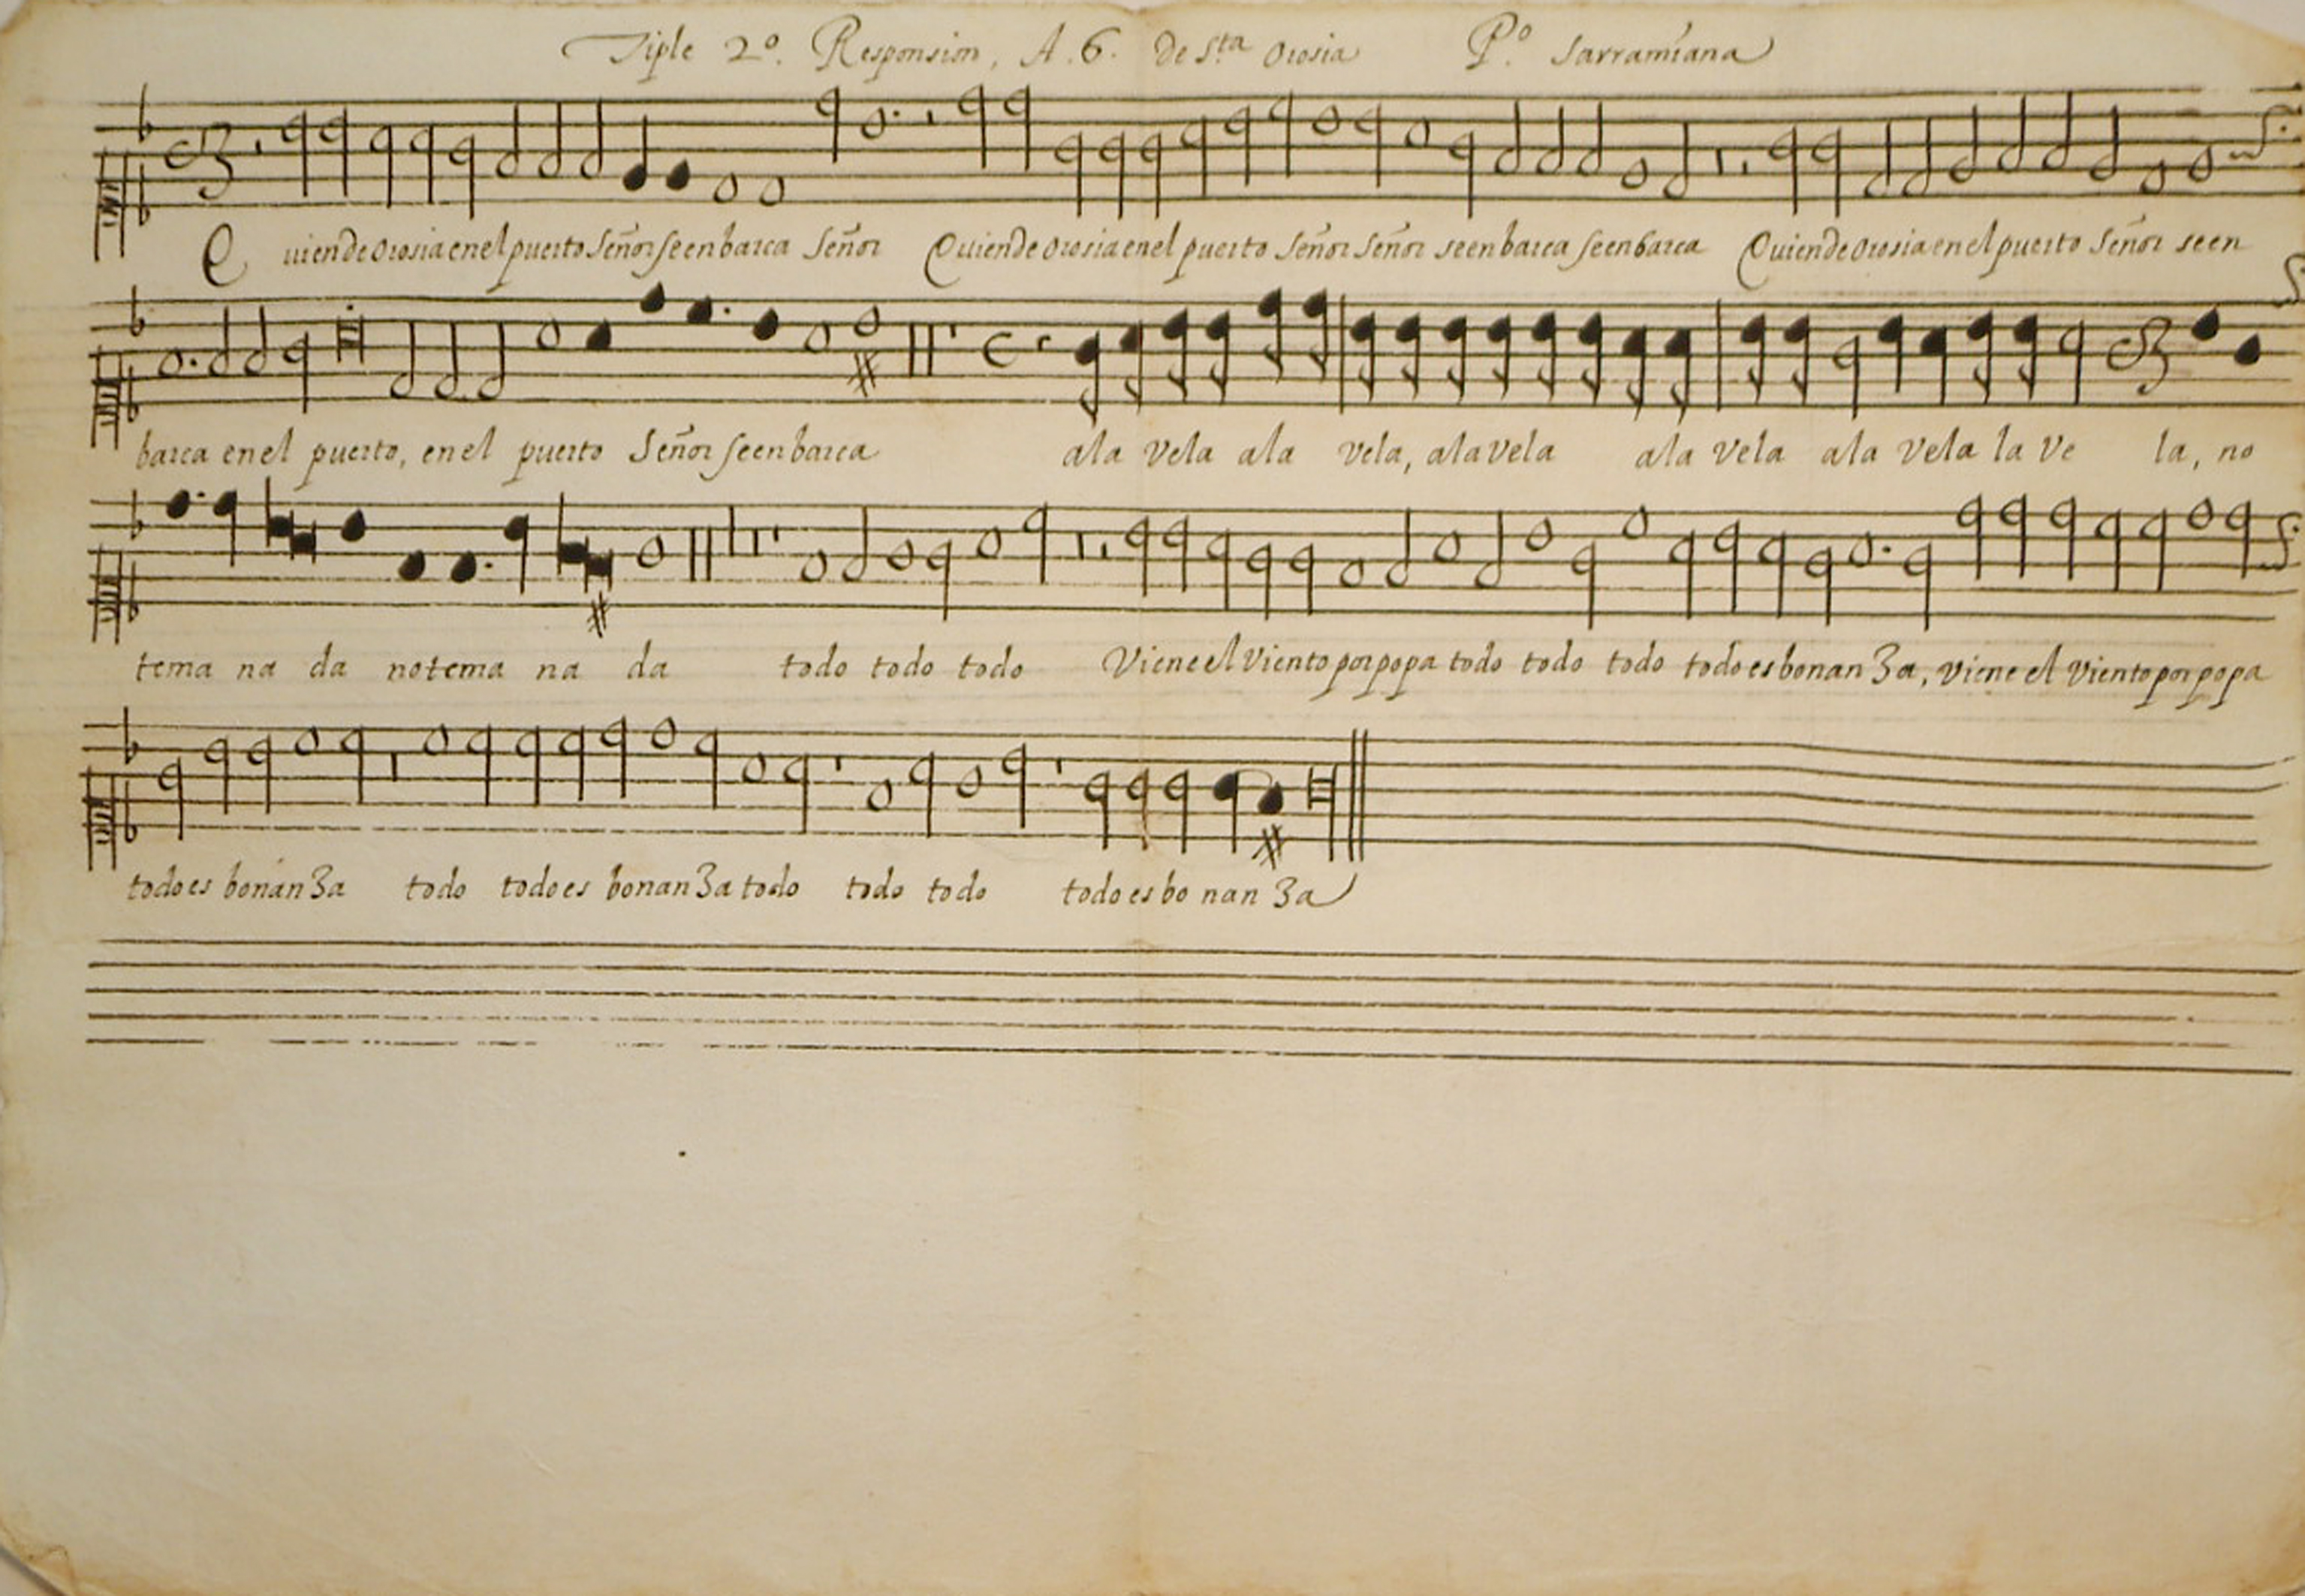 Tiple 2º. Responsion, A.6. De S.ta Orosia Pº. Sarramiana
Quien de orosia en el puerto Señor se en barca Señor Quien de orosia en el puerto Señor Señor se en barca se en barca Quien de orosia en el puerto Señor se en
barca en el puerto, en el puerto Señor se en barca a la vela a la vela, a la vela a la vela a la vela la ve la, no
tema na da no tema na da todo todo todo Viene el viento por popa todo todo todo todo es bonan3a, viene el viento por popa
todo es bonan3a todo todo es bonan3a todo todo todo todo es bo nan 3a